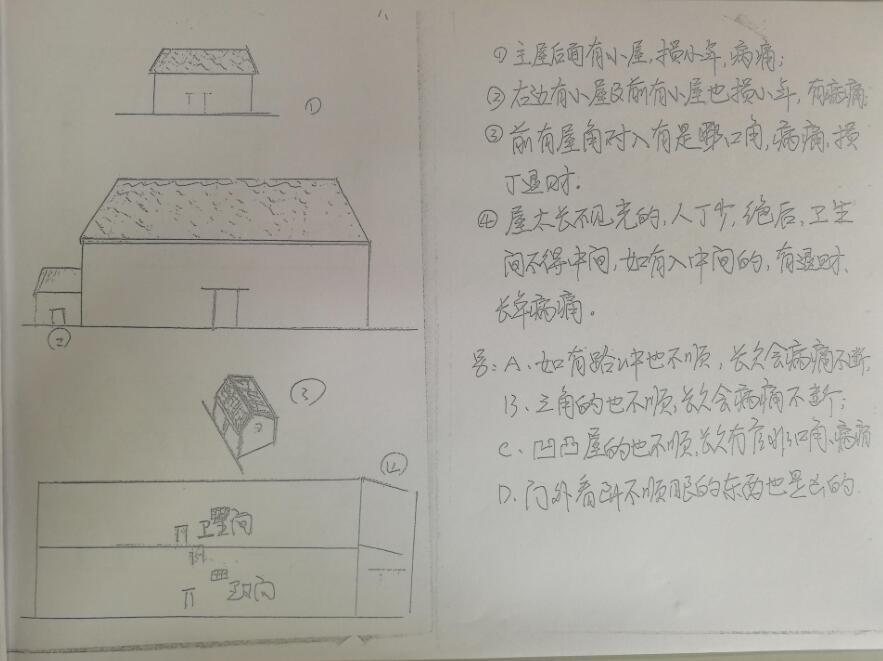 ①
②
③
④
卫生间
卫生间
①主屋后面有小屋,损小年,病痛;
②右边有小屋及前有小屋也损小年,有病痛;
③前有屋角对入有是非口角,病痛、损
丁退财。
④屋太长不见光的,人丁少,绝后,卫生
间不得中间,如有入中间的,有退财、
长年病痛。
A、如有路冲也不顺,长久会病痛不断;
B、三角的也不顺,长久会病痛不断;
C、凹凸屋的也不顺,长久有官非口角、病痛
D、门外看到不顺眼的东西也是凶的.